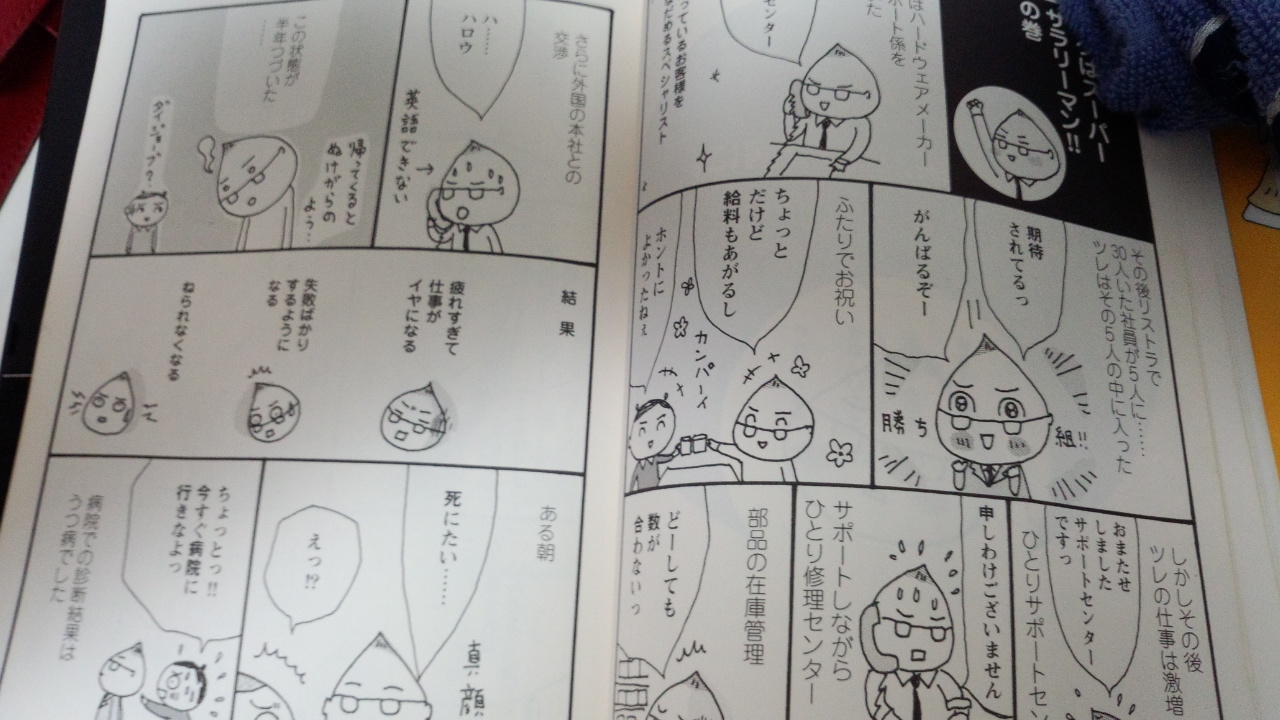 はスーパー
サラリーマン!!
の巻
はハードウェアメーカー
ポート係を
センター
っているお客様を
なだめるスペシャリスト
その後リストラで
30人いた社員が5人に……
ツレはその5人の中に入った
期待
されてるっ
がんばるぞー
勝ち組!!
ふたりでお祝い
ちょっと
だけど
給料もあがるし
カンパーイ
ホントに
よかったねぇ
しかしその後
ツレの仕事は激増
おまたせ
しました
サポートセンター
ですっ
ひとりサポートセン
申しわけございません
サポートしながら
ひとり修理センター
部品の在庫管理
どーしても
数が
合わないっ
さらに外国の本社との
交渉
ハ……
ハロウ
英語できない
この状態が
半年つづいた
……
帰ってくると
ぬけがらの
よう…
ダイジョーブ?
結果
疲れすぎて
仕事が
イヤになる
失敗ばかり
するように
なる
ねられなくなる
ある朝
死にたい……
真顔
えっ!?
ちょっとっ!!
今すぐ病院に
行きなよっ
病院での診断結果は
うつ病でした